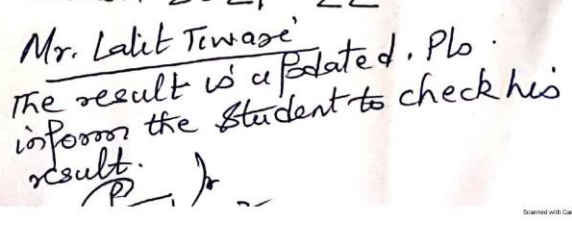 Mr. Lalit Tiware
The result is updated. Pls.
inform the student to check his
result.
Scanned with Ca